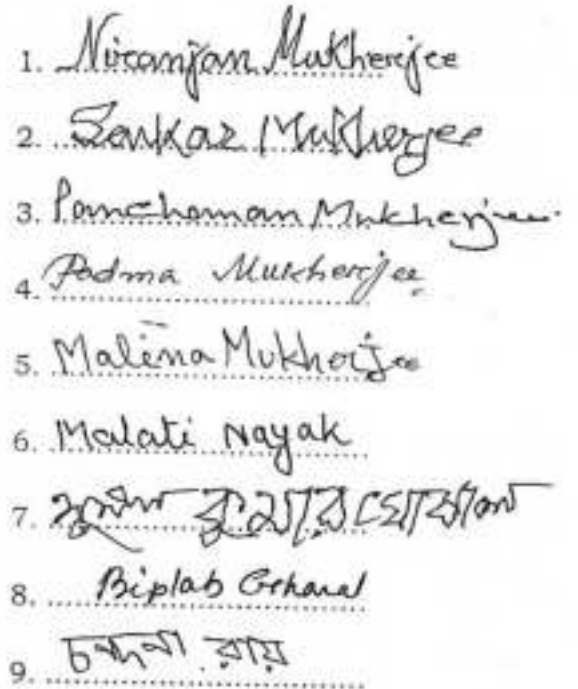 1. Niranjan Mukherjee
2. Sankar Mukherjee
3. Panchanan Mukherjee
4. Padma Mukherjee
5. Malina Mukherjee
6. Malati Nayak
7. কুমার ঘোষাল
8. Biplab Ghosal
9. চন্দনা রায়